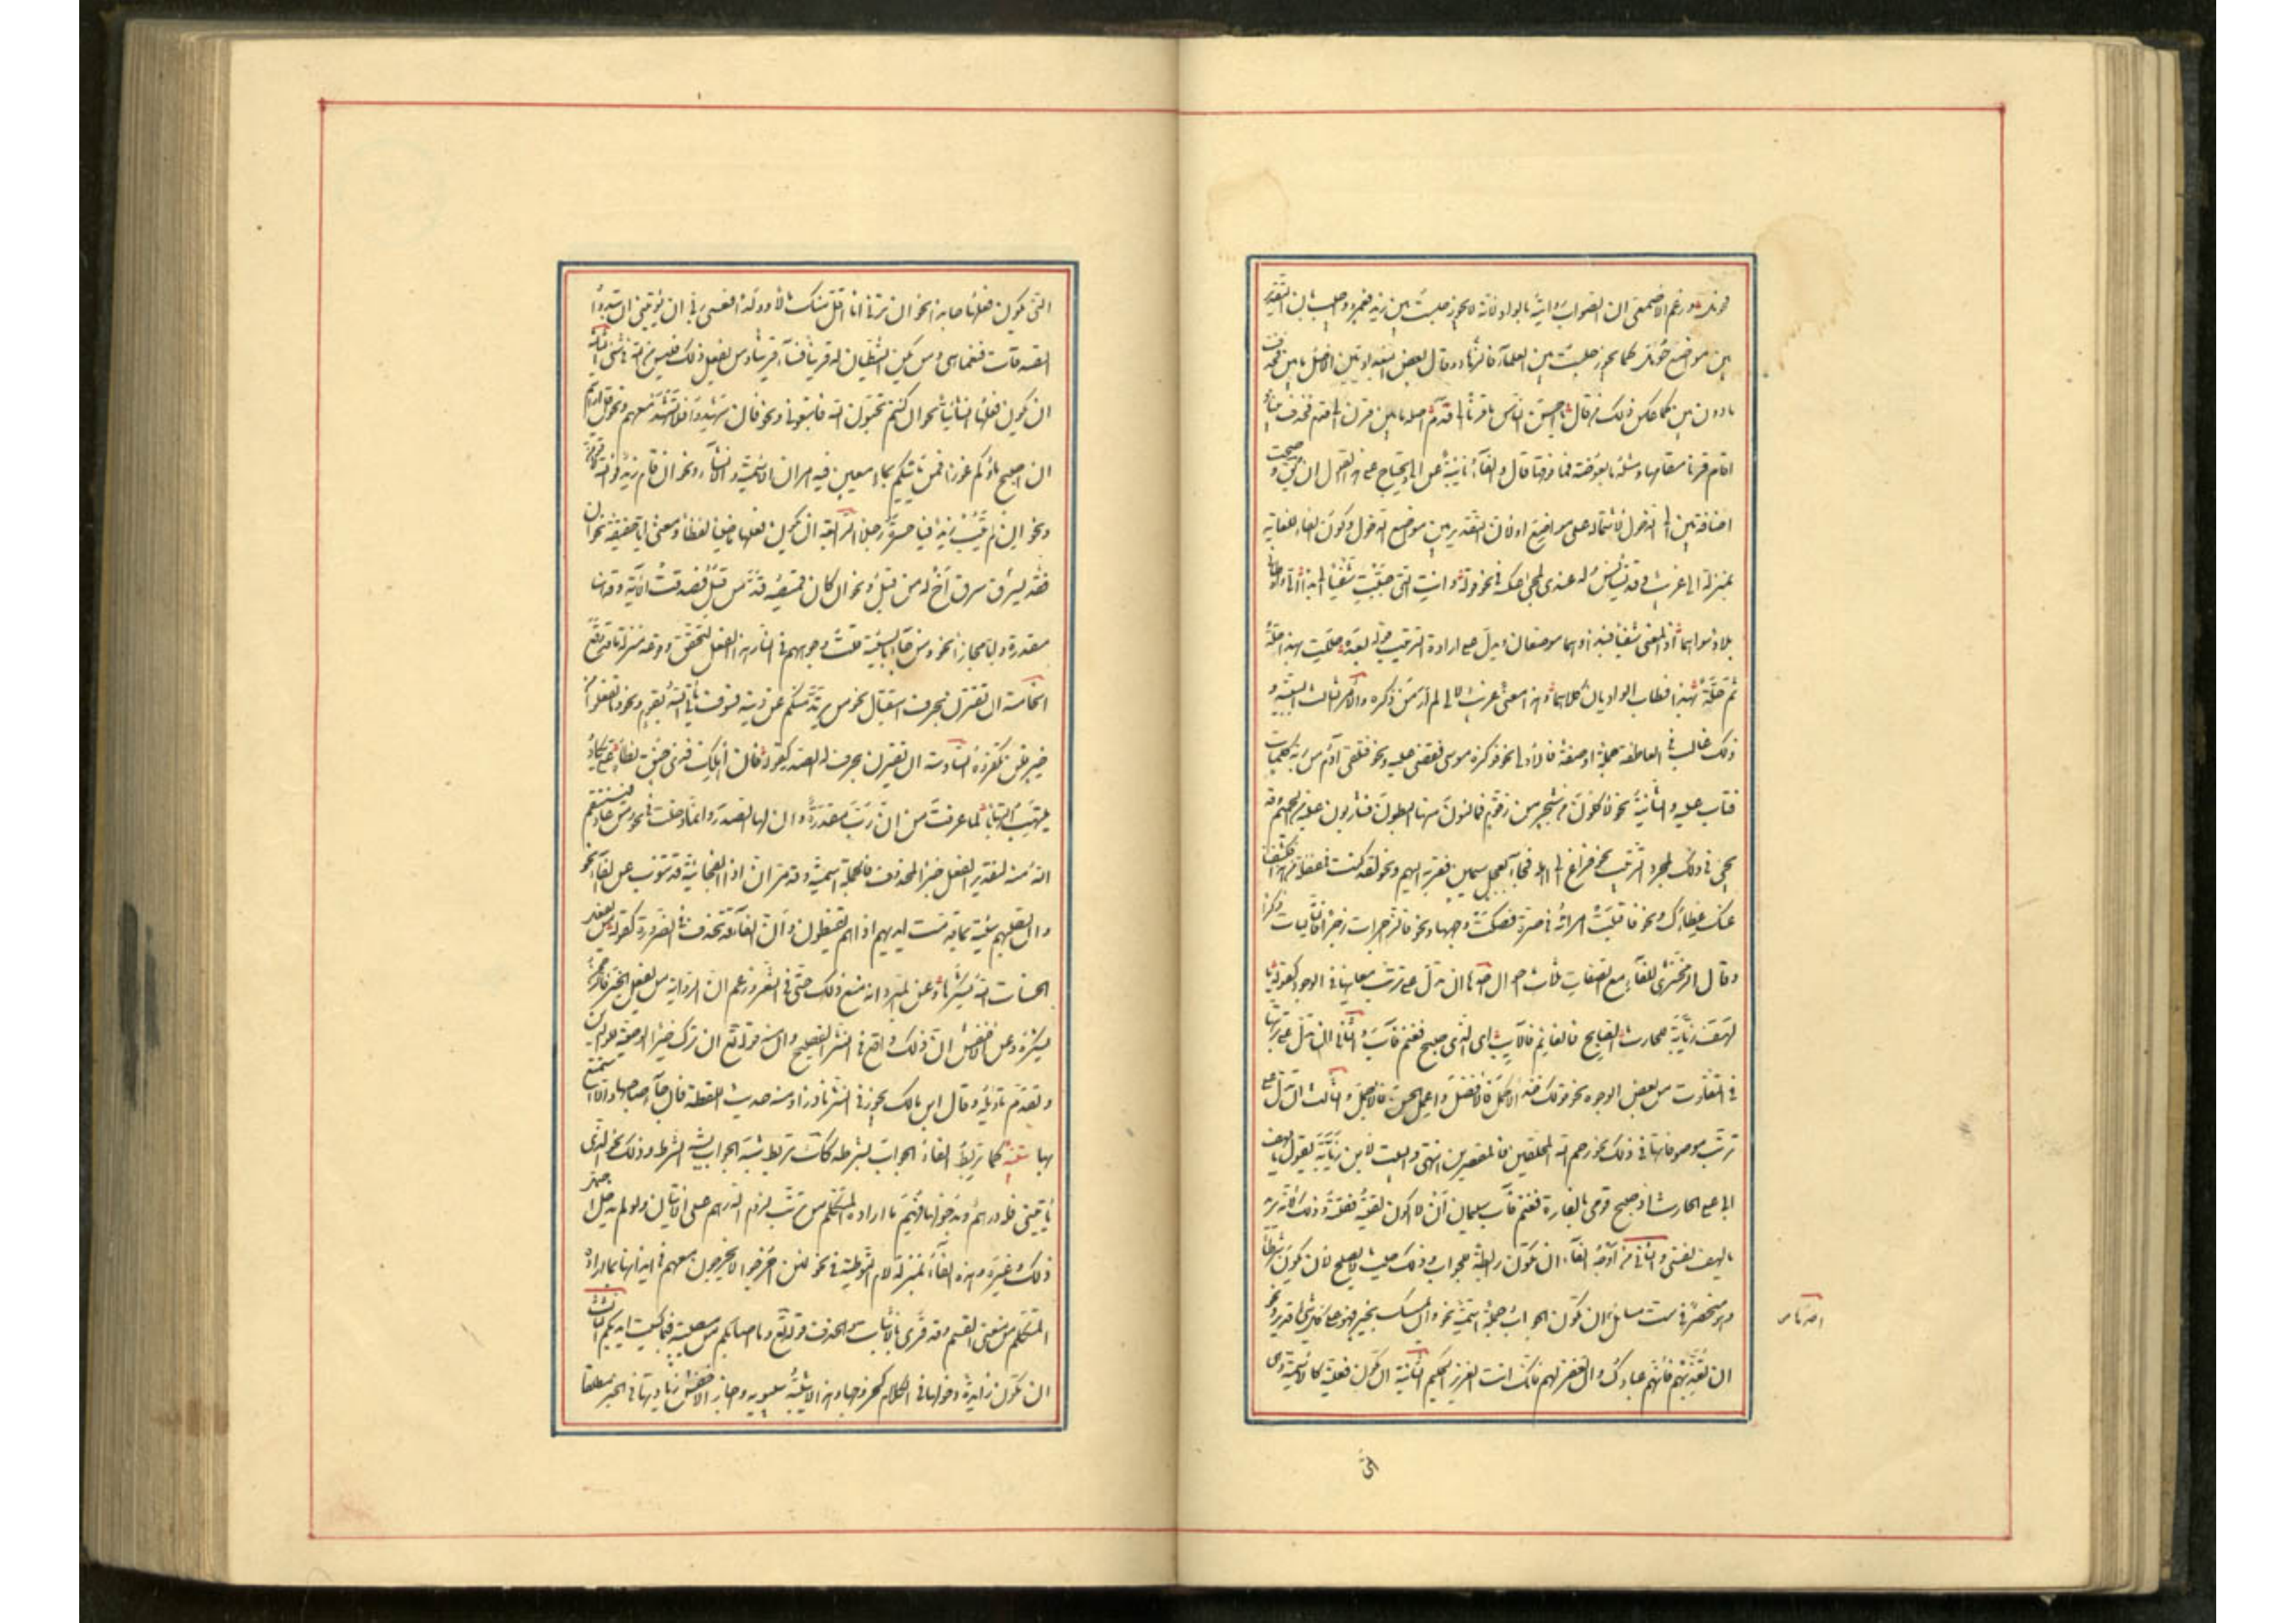 فحومل وزعم الاصمعي ان الصواب روايته بالواو لانه لا يجوز جلست بين زيد فعمرو واجيب بان التقدير
بين مواضع حومل كما يجوز جلست بين العلماء فالزهاد وقال بعض البغداديين الاصل ما بين فحذف
ما دون بين كما عكس ذلك من قال يا احسن الناس ما قرنا الى قدم اصله ما بين قرن الى قدم فحذف بين و
اقام قرنا مقامها ومثله ما بعوضة فما فوقها قال والفاء نائبة عن الى ويحتاج على هذا القول الى ان يقال وصحت
اضافة بين الى الدخول لاشتماله على مواضع اولان التقدير بين مواضع الدخول وكون الفاء للغاية
بمنزلة الى غريب وقد يستأنس له عندي بمجئ عكسه في نحو قوله وانت التي حببت شغبا الى بدا الي واوطاني
بلاد سواهما اذ المعنى شغبا فبدا وهما موضعان ويدل على ارادة الترتيب قوله بعده حللت بهذا حلة
ثم حلة بهذا فطاب الواديان كلاهما وهذا معنى غريب لالى لم ار من ذكره والامر الثالث السببية و
ذلك غالب في العاطفة جملة او صفة فالاول نحو فوكزه موسى فقضى عليه ونحو فتلقى آدم من ربه كلمات
فتاب عليه والثانية نحو لآكلون من شجر من زقوم فمالئون منها البطون فشاربون عليه من الحميم وقد
يجئ في ذلك لمجرد الترتيب نحو فراغ الى اهله فجاء بعجل سمين فقربه اليهم ونحو لقد كنت في غفلة من هذا فكشفنا
عنك غطاءك ونحو فاقبلت امرأته في صرة فصكت وجهها ونحو فالزاجرات زجرا فالتاليات ذكرا
وقال الزمخشري للفاء مع الصفات ثلاث احوال احدها ان تدل على ترتب معانيها في الوجود كقوله يا
لهف زيابة للحارث الصابح فالغانم فالآيب اي الذي صبح فغنم فآب والثاني ان تدل على ترتبها
في التفاوت من بعض الوجوه نحو قولك خذ الاكمل فالافضل واعمل الاحسن فالاجمل والثالث ان تدل على
ترتب موصوفاتها في ذلك نحو رحم الله المحلقين فالمقصرين انتهى والبيت لابن زيابة يقول يا لهف
ابي على الحارث اذ صبح قومي بالغارة فغنم فآب سليما ان لا اكون لقيته فقتلته وذلك لانه يريد
يا لهف نفسي والثاني من اوجه الفاء ان تكون رابطة للجواب وذلك حيث لا يصلح لان يكون شرطا
وهو منحصر في ست مسائل ان تكون الجواب جملة اسمية نحو وان يمسسك بخير فهو على كل شيء قدير ونحو
ان تعذبهم فانهم عبادك وان تغفر لهم فانك انت العزيز الحكيم الثانية ان تكون فعلية كالاسمية وهي
التي يكون فعلها جامدا نحو ان ترني انا اقل منك مالا وولدا فعسى ربي ان يؤتين ان تبدوا
الصدقات فنعما هي ومن يكن الشيطان له قرينا فساء قرينا ومن يفعل ذلك فليس من الله في شئ الثالثة
ان يكون فعلها انشائيا نحو ان كنتم تحبون الله فاتبعوني ونحو فان شهدوا فلا تشهد معهم ونحو قل ارايتم
ان اصبح ماؤكم غورا فمن ياتيكم بماء معين فيه امران الاسمية والانشاء ونحو ان قام زيد فوالله لاقومن
ونحو ان لم يتب زيد فيا خسره رجلا الرابعة ان يكون فعلها ماضيا لفظا ومعنى اما حقيقة نحو ان
يسرق فقد سرق اخ له من قبل ونحو ان كان قميصه قد من قبل فصدقت الآية وقد هنا
مقدرة واما مجازا نحو ومن جاء بالسيئة فكبت وجوههم في النار نزل الفعل لتحقق وقوعه منزلة ما قد وقع
الخامسة ان تقترن بحرف استقبال نحو من يرتد منكم عن دينه فسوف ياتي الله بقوم ونحو ما تفعلوا من
خير فلن تكفروه السادسة ان تقترن بحرف له الصدر كقوله فان اهلك فذي حنق لظاه علي تكاد
تلتهب التهابا لما عرفت من ان رب مقدرة وان لها الصدر وانما دخلت في نحو ومن عاد فينتقم
الله منه لتقدير الفعل خبرا لمحذوف فالجملة اسمية وقد مر ان اذا الفجائية قد تنوب عن الفاء نحو
وان تصبهم سيئة بما قدمت ايديهم اذا هم يقنطون وان الفاء قد تحذف في الضرورة كقوله من يفعل
الحسنات الله يشكرها وعن المبرد انه منع ذلك حتى في الشعر وزعم ان الرواية من يفعل الخير فالرحمن
يشكره وعن الاخفش ان ذلك واقع في النثر الفصيح وان منه قوله تع ان ترك خيرا الوصية للوالدين
وتقدم تاويله وقال ابن مالك يجوز في النثر نادرا ومنه حديث اللقطة فان جاء صاحبها والا استمتع
بها تنبيه كما تربط الفاء الجواب بشرطه كذلك تربط شبه الجواب بشبه الشرط وذلك نحو الذي
ياتيني فله درهم وبدخولها فهم ما اراده المتكلم من ترتب لزوم الدرهم على الاتيان ولو لم تدخل احتمل
ذلك وغيره وهذه الفاء بمنزلة لام التوطئة في نحو لئن اخرجوا لا يخرجون معهم في ايذانها بما اراده
المتكلم من معنى القسم وقد قرئ بالاثبات والحذف قوله تع وما اصابكم من مصيبة فبما كسبت ايديكم الثالث
ان تكون زايدة دخولها في الكلام كخروجها وهذا لا يثبته سيبويه واجاز الاخفش زيادتها في الخبر مطلقا